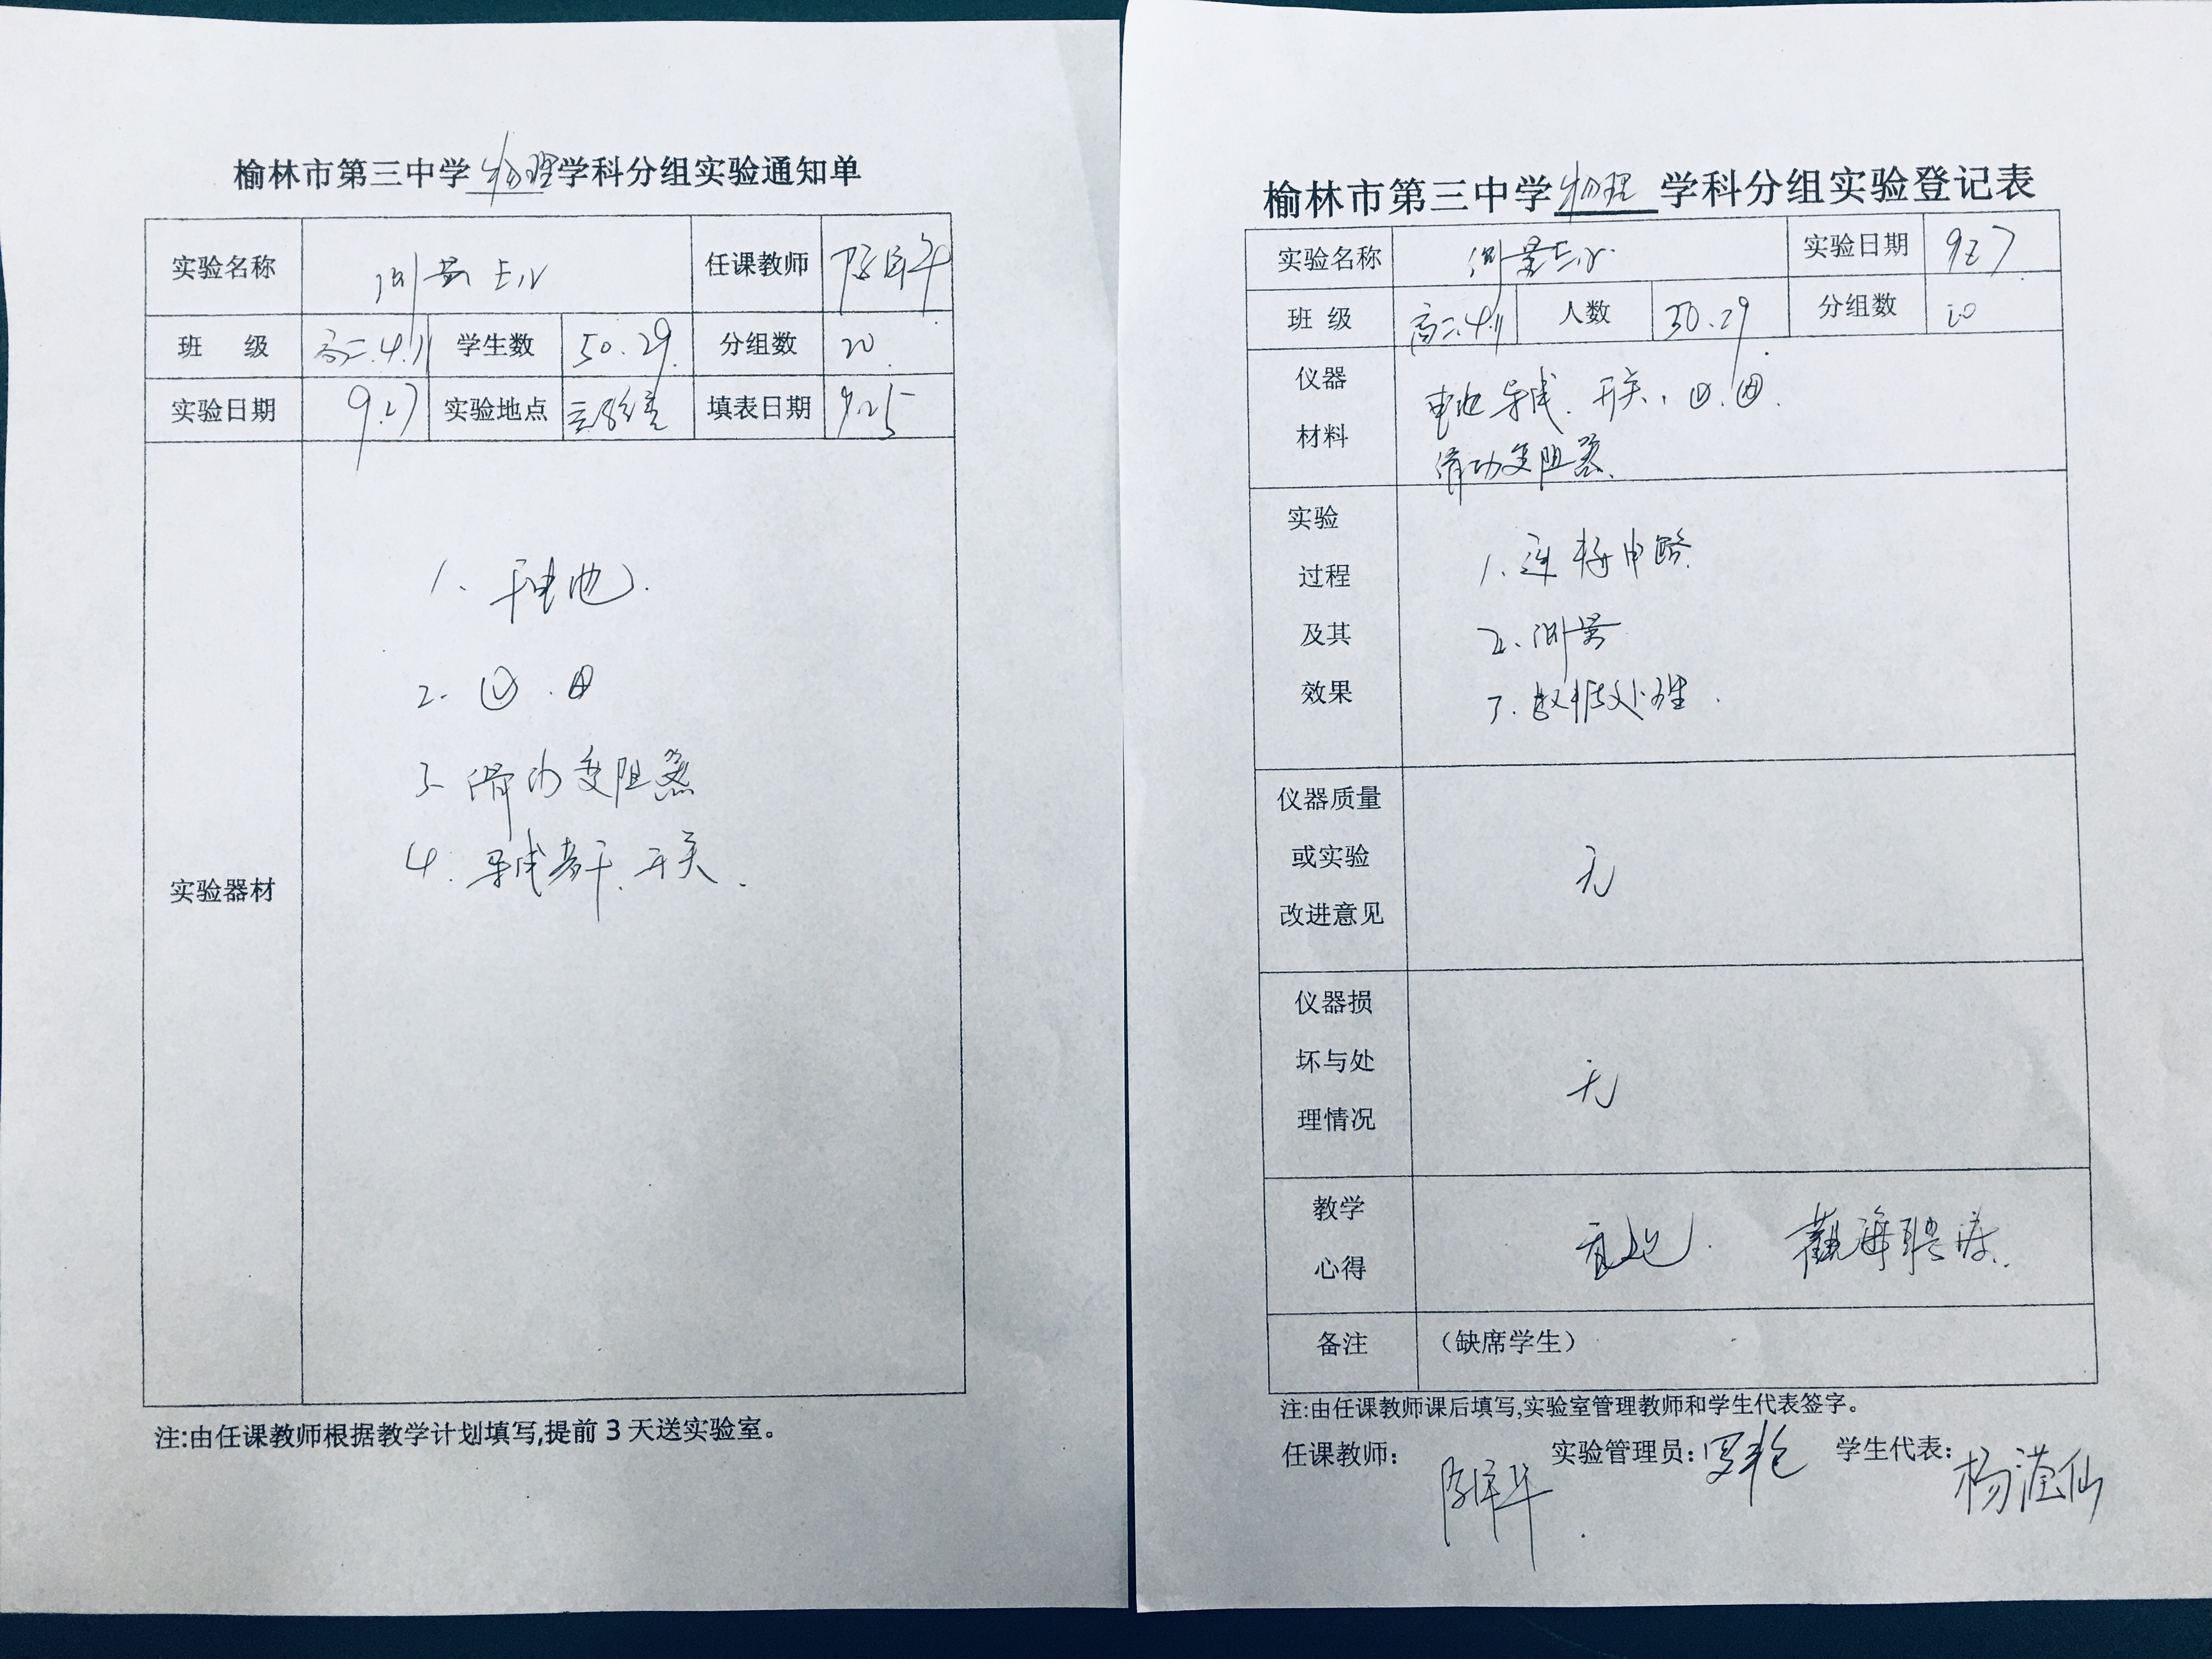 榆林市第三中学物理学科分组实验通知单
实验名称 测量E,r 任课教师
班 级 高二.4.11 学生数 50.29 分组数 20
实验日期 9.27 实验地点 实验室 填表日期 9.25
实验器材
1. 干电池.
2. Ⓥ.Ⓐ
3. 滑动变阻器
4. 导线若干.开关.
注:由任课教师根据教学计划填写,提前3天送实验室。
榆林市第三中学物理学科分组实验登记表
实验名称 测量E,r. 实验日期 9.27
班 级 高二.4.11 人数 50.29 分组数 20
仪器
材料
电池 导线. 开关. Ⓥ.Ⓐ.
滑动变阻器.
实验
过程
及其
效果
1. 连接电路
2. 测量
3. 数据处理.
仪器质量
或实验
改进意见
无
仪器损
坏与处
理情况
无
教学
心得
备注 (缺席学生)
注:由任课教师课后填写,实验室管理教师和学生代表签字。
任课教师: 实验管理员: 学生代表: